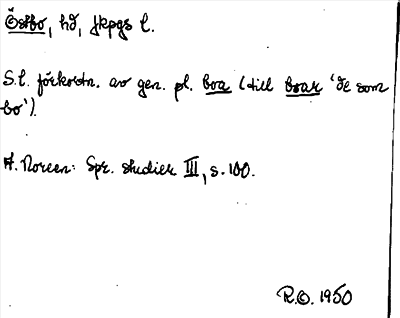 Östbo, hd, Jkpgs l.
S.l. förkortn. av gen. pl. boa (till boar 'de som
bo').
A. Noreen: Spr. studier III, s. 100.
R.O. 1950